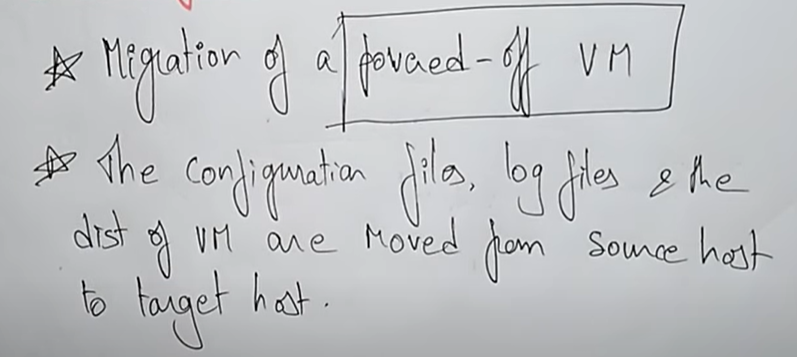 ☆ Migration of a powered-off VM
☆ The configuration files, log files & the
disk of VM are moved from source host
to target host.